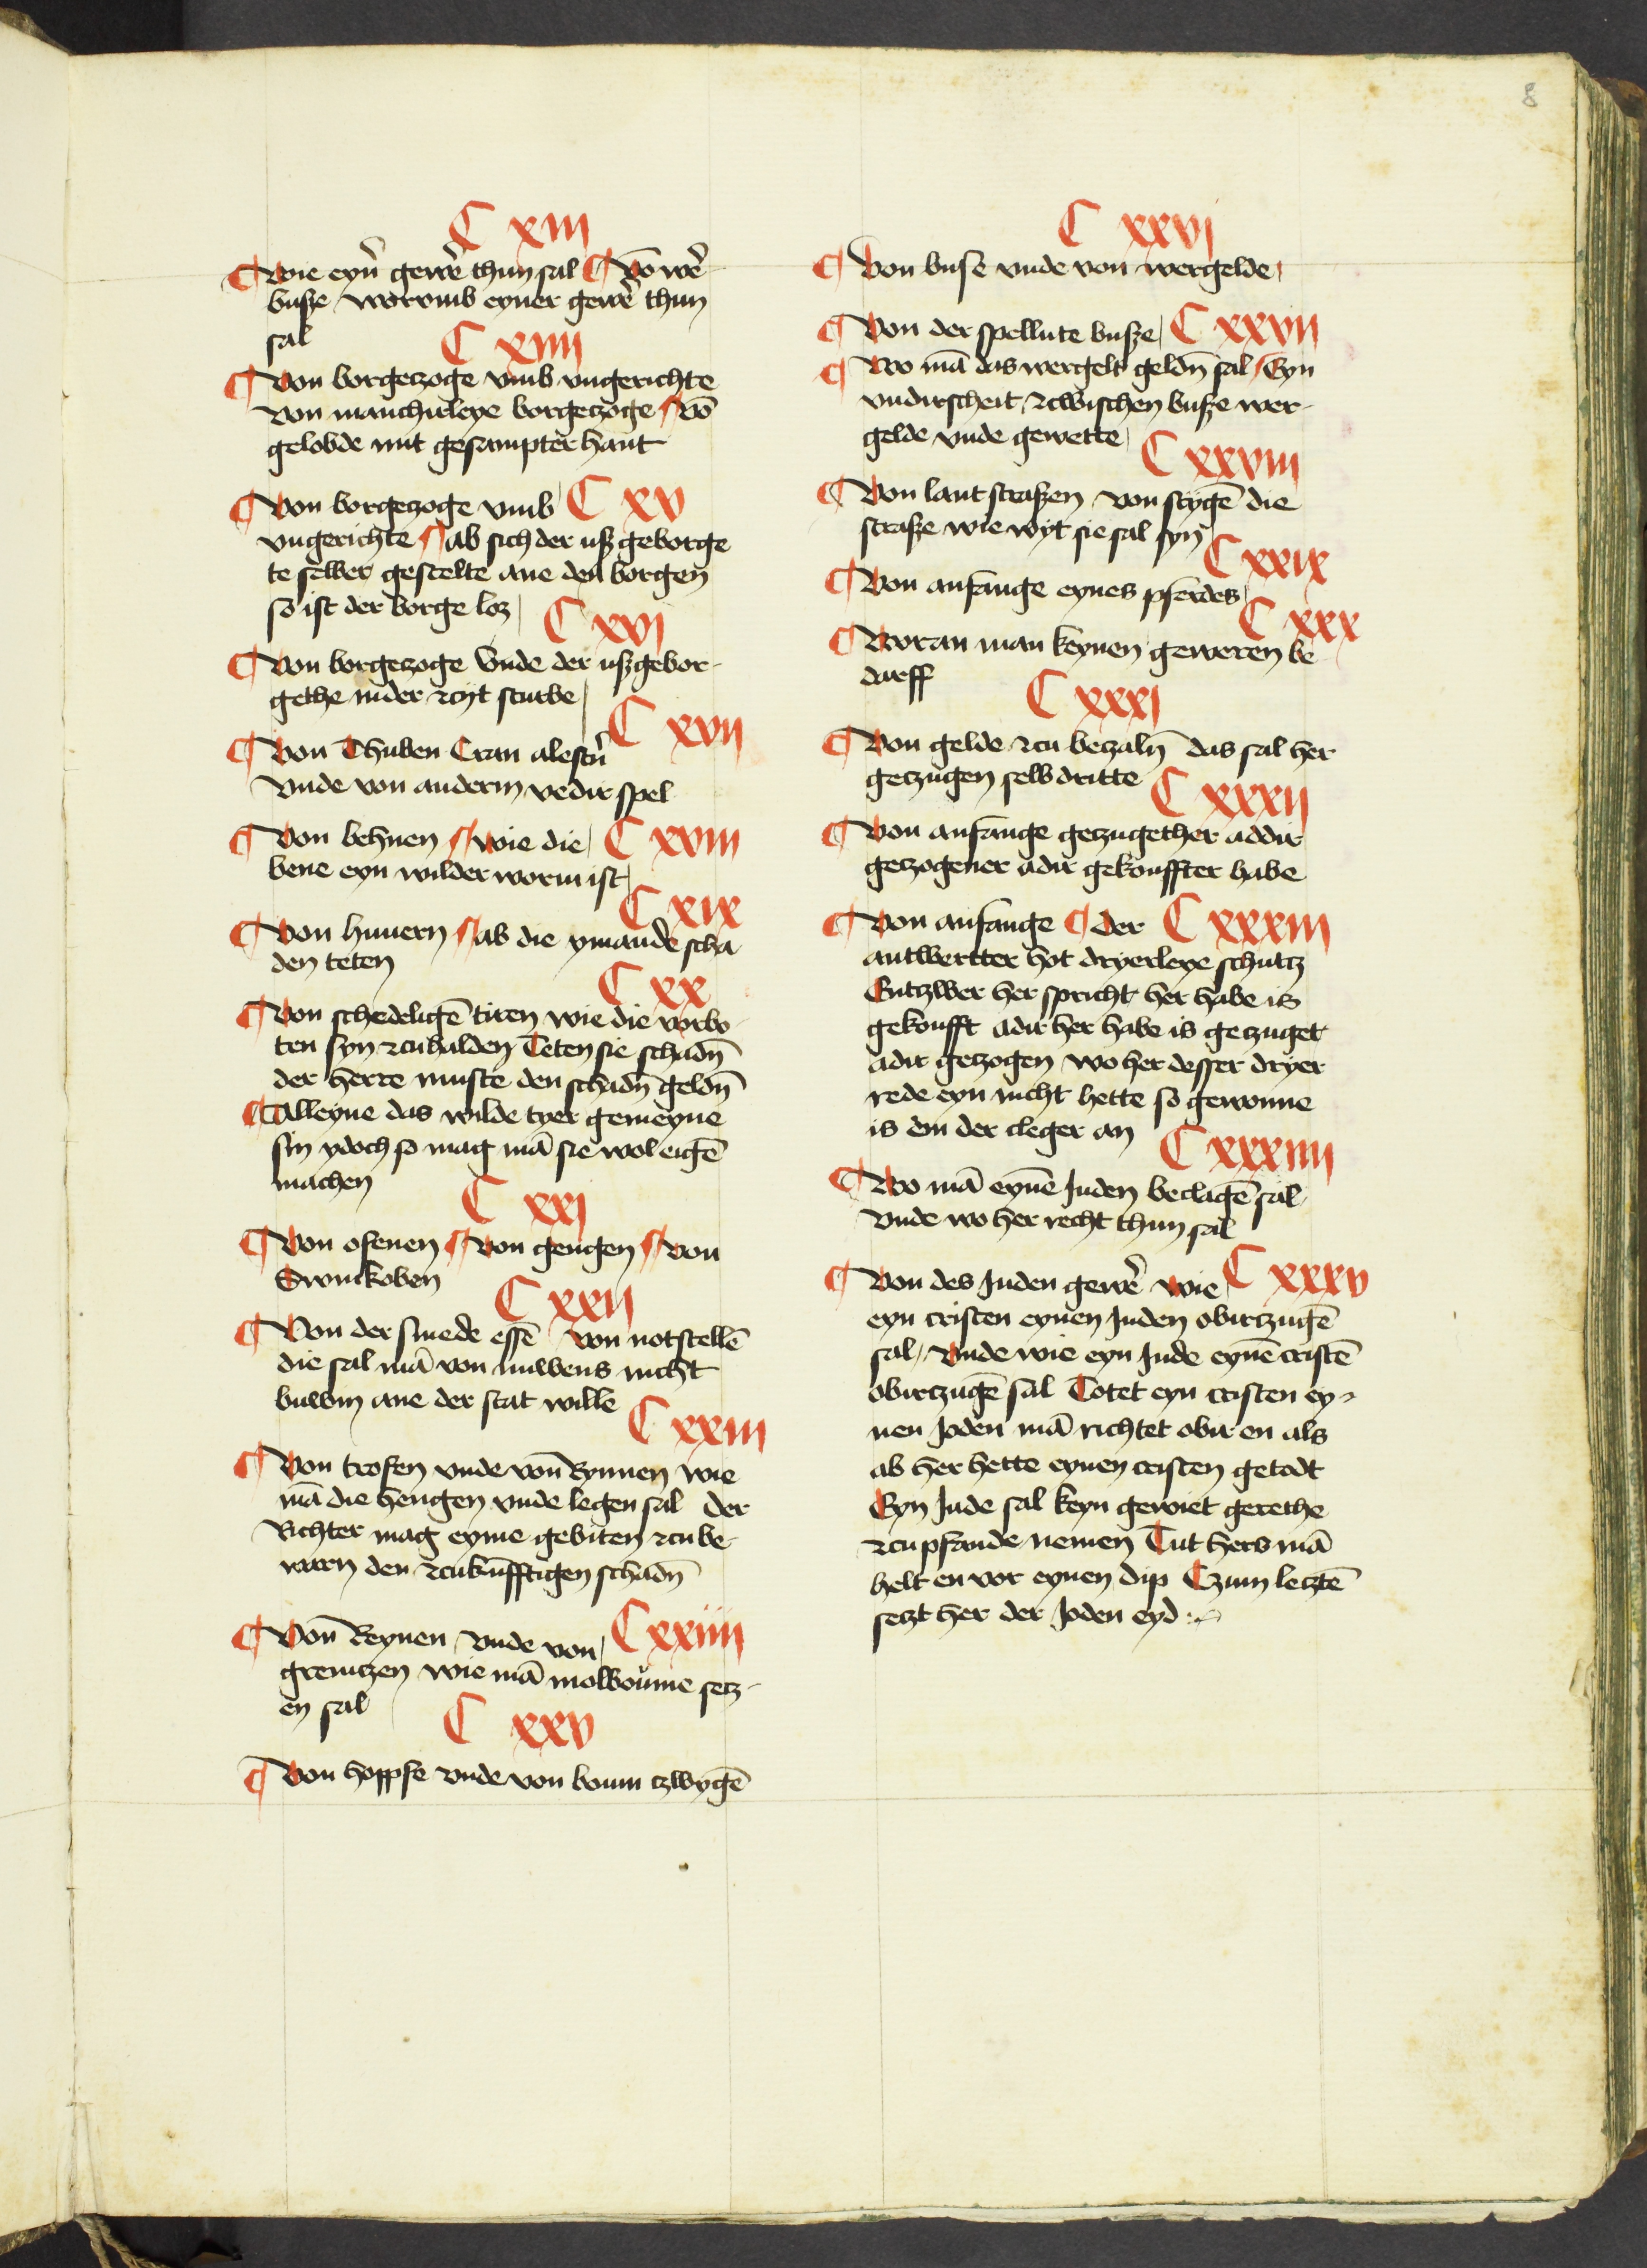 8
C xiii
¶ Wie eyn̄ gewe᷑ thun sal ¶ Vō we᷑
busze worvmb eyner gewe᷑ thun
sal
C xiiii
¶ Von borgeczoge vmb vngerichte
Von manchirleye borgeczoge ¶ Vō
gelobde mit gesampter hant
¶ Von borgeczoge vmb C xv
vngerichte ¶ ab sich der usz geborge
te selber gestelte ane den borgen
so ist der borge loz
C xvi
¶ Von borgeczoge Vnde der uszgebor-
gethe inder zcyt sturbe
C xvii
¶ Von Thuben Cran alestn̄
Vnde von anderm vedir spel
¶ Von behnen ¶ wie die C xviii
bene eyn wilder worm ist
C xix
¶ Von hunern ¶ ab die ymande scha
den teten
C xx
¶ Von schedeligē tiren wie die vorbo
ten syn zcuhalden Teten sie schadn̄
der herre muste den schadn̄ geldn̄
¶ Alleyne das wilde tyer gemeyne
sin ydoch so mag mā sie wol eigē
machen
C xxi
¶ Von ofenen ¶ Von gengen ¶ Von
Swinkoben
C xxii
¶ Von der smede essē Von notstellē
die sal mā von nuwens nicht
buwin ane der stat wille
C xxiii
¶ Von trofen vnde von Rynnen wie
mā die hengen vnde legen sal der
Richter mag eyme gebiten zcu be-
waren den zcukunfftigen schadn̄
¶ Von Reynen Vnde von C xxiiii
grenitzen wie mā molboume setz-
en sal
C xxv
¶ Von hoppfe vnde von boum czwygē
C xxvi
¶ Von buse vnde von wergelde
¶ Von der spellute busze C xxvii
¶ Wo mā das wergelt geldn̄ sal Eyn
vndirscheit zcwischen busze wer-
gelde vnde gewette
C xxviii
¶ Von lantstraszen von stygē die
strasze wie wyt sie sal syn
C xxix
¶ Von anfange eynes pferdes
C xxx
¶ Woran man keynen geweren be
darff
C xxxi
¶ Von gelde zcu beczaln̄ das sal her
geczugen selb dritte
C xxxii
¶ Von anfange geczugether addir
geczogener adir gekouffter habe
¶ Von anfange ¶ der C xxxiii
antwertter hot dryerleye schutz
Entzwer her spricht her habe is
gekoufft adir her habe is geczuget
adir geczogen wo her desser dryer
rede eyn nicht hette so gewonne
is em der cleger an
C xxxiiii
¶ Wo mā eynē Juden beclagē sal
Vnde wo her recht thun sal
¶ Von des Juden gewe᷑ wie C xxxv
eyn cristen eynen Juden obirczugē
sal Vnde wie eyn Jude eynē cristē
obirczugē sal Totet eyn cristen ey-
nen Joden mā richtet obir en als
ab her hette eynen cristen getodt
Eyn Jude sal keyn gewiet gerethe
zcu pfande nemen Tut hers mā
helt en vor eynen dip Czum letztē
setzt her der Joden eyd